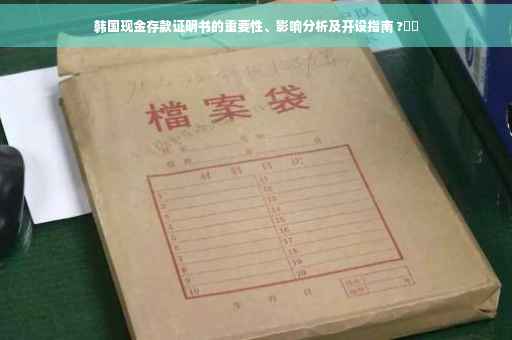 韩国现金存款证明书的重要性、影响分析及开设指南?
檔案袋
材料目次
1
2
3
4
5
6
7
8
9
10
11
12
13
14
15
16
17
18
19
20
年 月 日